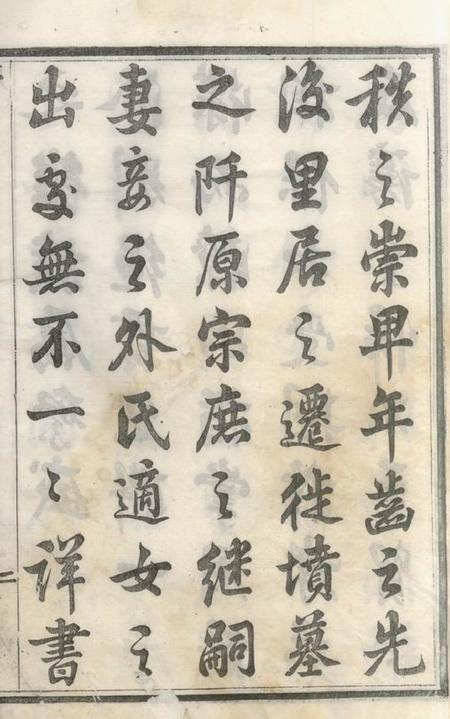 秩之崇卑年齒之先
後里居之遷徙墳墓
之阡原宗庶之继嗣
妻妾之外氏適女之
出處無不一〻詳書